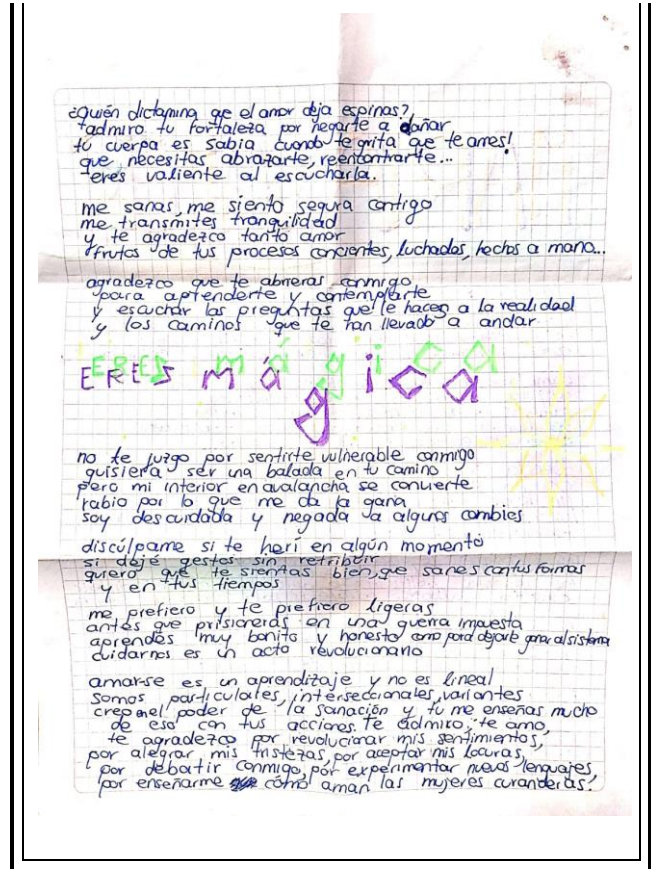 ¿quién dictamina qe el amor deja espinas?
admiro tu fortaleza por negarte a dañar
tu cuerpa es sabia cuando te grita que te ames!
que necesitas abrazarte, reencontrarte...
eres valiente al escucharla.
me sanas, me siento segura contigo
me transmites tranquilidad
y te agradezco tanto amor
frutos de tus procesos concientes, luchados, hechos a mano...
agradezco que te abrieras conmigo
para aprenderte y contemplarte
y escuchar las preguntas que le haces a la realidad
y los caminos que te han llevado a andar
ERES mágica
no te juzgo por sentirte vulnerable conmigo
quisiera ser una balada en tu camino
pero mi interior en avalancha se convierte
rabio por lo que me da la gana
soy descuidada y negada a algunos cambios
discúlpame si te herí en algún momento
si dejé gestos sin retribuir
quiero que te sientas bien, que sanes con tus formas
y en tus tiempos
me prefiero y te prefiero ligeras
antes que prisioneras en una guerra impuesta
aprendes muy bonito y honesto como para dejarle ganar al sistema
cuidarnos es un acto revolucionario
amarse es un aprendizaje y no es lineal
somos particulares, interseccionales, variantes
creo en el poder de la sanación y tu me enseñas mucho
de eso con tus acciones. Te admiro, te amo,
te agradezco por revolucionar mis sentimientos,
por alegrar mis tristezas, por aceptar mis locuras,
por debatir conmigo, por experimentar nuevos lenguajes,
por enseñarme cómo aman las mujeres curanderas!